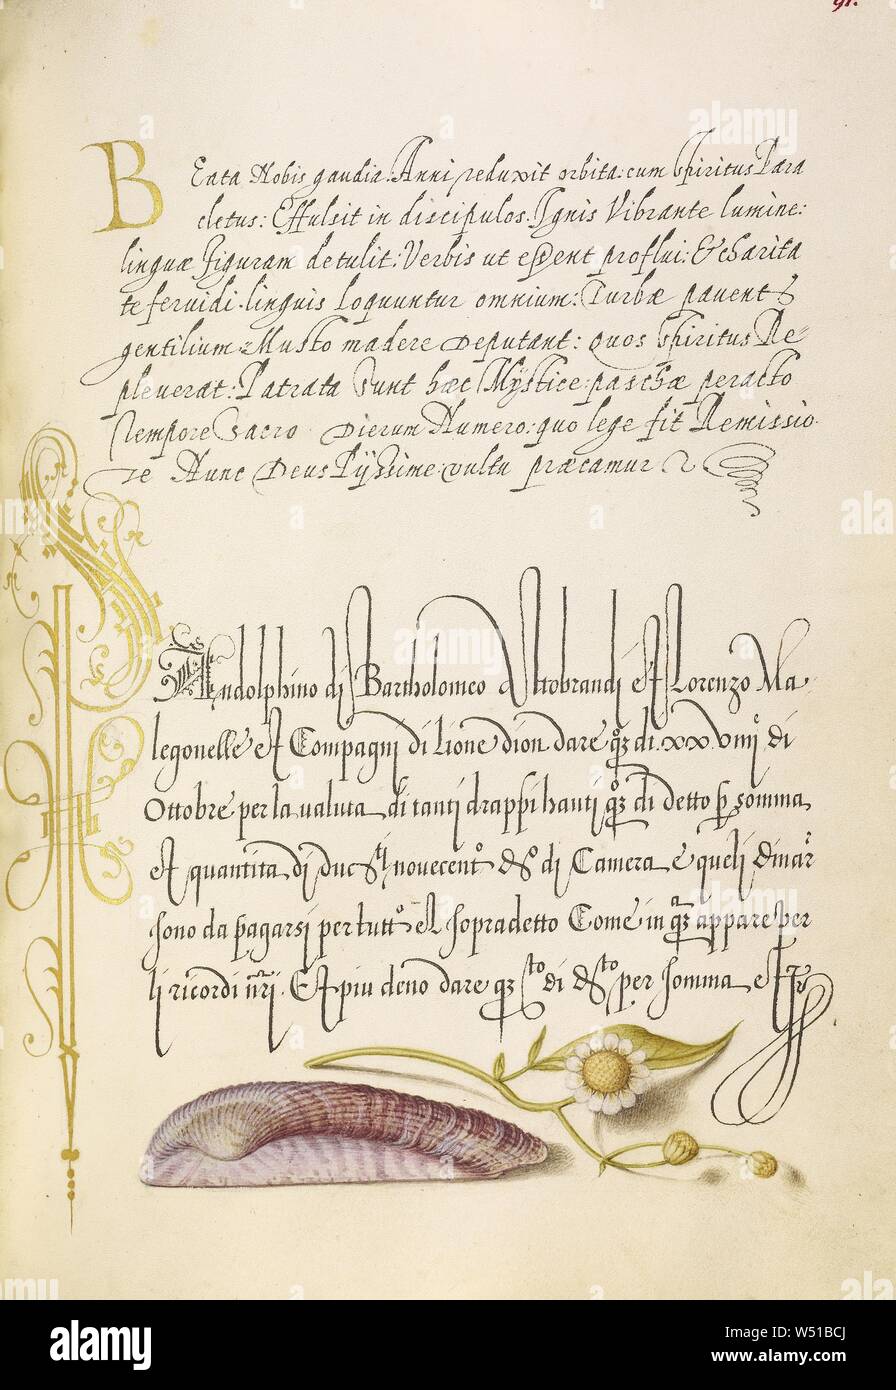 91.
Beata Nobis gaudia: Anni reduxit orbita: cum spiritus Para
cletus: Effulsit in discipulos. Ignis Vibrante lumine:
linguæ figuram detulit: Verbis ut essent proflui: & charita
te fervidi. linguis loquuntur omnium: Turbæ pavent
gentilium Musto madere Deputant: quos spiritus Re-
pleverat: Patrata sunt hæc Mystice: paschæ peracto
tempore Sacro Dierum Numero: quo lege fit Remissio
te Nunc Deus Pijssime vultu præcamur
Andolphino di Bartholomeo Altobrandi et Lorenzo Ma
legonelle et Compagni di Lione dion dare di xxviiij di
Ottobre per la valuta di tanti drappi hauti di detto p somma
et quantita di novecento di Camera e queli dinar
sono da pagarsi per tutto el sopradetto Come in appare per
li ricordi nri. Et piu deno dare di per somma et
alamy
Image ID: W51BCJ
www.alamy.com